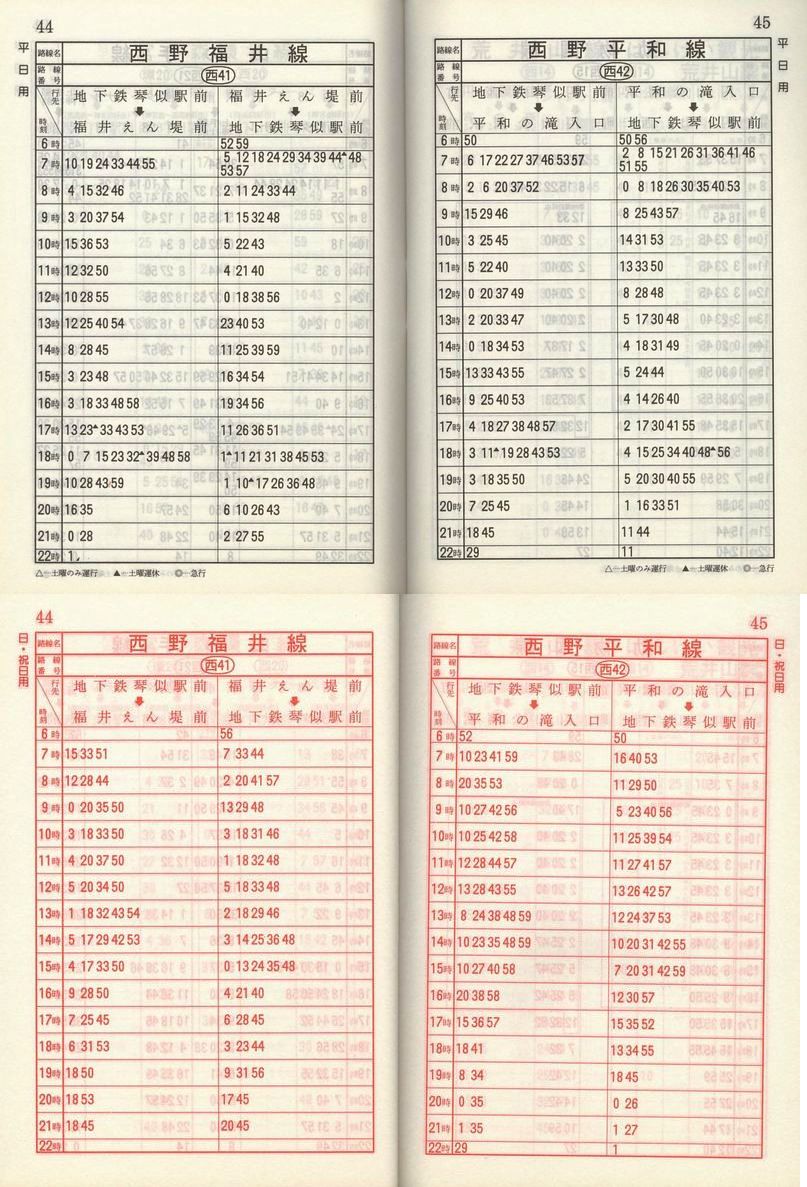 44
平日用
路線名 西野福井線
路線番号 西41
行先 時刻 地下鉄琴似駅前 福井えん堤前
福井えん堤前 地下鉄琴似駅前
6時 52 59
7時 10 19 24 33 44 55 5 12 18 24 29 34 39 44▲48
53 57
8時 4 15 32 46 2 11 24 33 44
9時 3 20 37 54 1 15 32 48
10時 15 36 53 5 22 43
11時 12 32 50 4 21 40
12時 10 28 55 0 18 38 56
13時 12 25 40 54 23 40 53
14時 8 28 45 11 25 39 59
15時 3 23 48 16 34 54
16時 3 18 33 48 58 19 34 56
17時 13 23▲33 43 53 11 26 36 51
18時 0 7 15 23 32▲39 48 58 1▲11 21 31 38 45 53
19時 10 28 43 59 1 10▲17 26 36 48
20時 16 35 6 10 26 43
21時 0 28 2 27 55
22時 1
△―土曜のみ運行 ▲―土曜運休 ◎―急行
45
平日用
路線名 西野平和線
路線番号 西42
行先 時刻 地下鉄琴似駅前 平和の滝入口
平和の滝入口 地下鉄琴似駅前
6時 50 50 56
7時 6 17 22 27 37 46 53 57 2 8 15 21 26 31 36 41 46
51 55
8時 2 6 20 37 52 0 8 18 26 30 35 40 53
9時 15 29 46 8 25 43 57
10時 3 25 45 14 31 53
11時 5 22 40 13 33 50
12時 0 20 37 49 8 28 48
13時 2 20 33 47 5 17 30 48
14時 0 18 34 53 4 18 31 49
15時 13 33 43 55 5 24 44
16時 9 25 40 53 4 14 26 40
17時 4 18 27 38 48 57 2 17 30 41 55
18時 3 11▲19 28 43 53 4 15 25 34 40 48▲56
19時 3 18 35 50 5 20 30 40 55
20時 7 25 45 1 16 33 51
21時 18 45 11 44
22時 29 11
△―土曜のみ運行 ▲―土曜運休 ◎―急行
44
日・祝日用
路線名 西野福井線
路線番号 西41
行先 時刻 地下鉄琴似駅前 福井えん堤前
福井えん堤前 地下鉄琴似駅前
6時 56
7時 15 33 51 7 33 44
8時 12 28 44 2 20 41 57
9時 0 20 35 50 13 29 48
10時 3 18 33 50 3 18 31 46
11時 4 20 37 50 1 18 32 48
12時 5 20 34 50 5 18 33 48
13時 1 18 32 43 54 2 18 29 46
14時 5 17 29 42 53 3 14 25 36 48
15時 4 17 33 50 0 13 24 35 48
16時 9 28 50 4 21 40
17時 7 25 45 6 28 45
18時 6 31 53 3 23 44
19時 18 50 9 31 56
20時 18 53 17 45
21時 18 45 20 45
22時
45
日・祝日用
路線名 西野平和線
路線番号 西42
行先 時刻 地下鉄琴似駅前 平和の滝入口
平和の滝入口 地下鉄琴似駅前
6時 52 50
7時 10 23 41 59 16 40 53
8時 20 35 53 11 29 50
9時 10 27 42 56 5 23 40 56
10時 10 25 42 58 11 25 39 54
11時 12 28 44 57 11 27 41 57
12時 13 28 43 55 13 26 42 57
13時 8 24 38 48 59 12 24 37 53
14時 10 23 35 48 59 10 20 31 42 55
15時 10 27 40 58 7 20 31 42 59
16時 20 38 58 12 30 57
17時 15 36 57 15 35 52
18時 18 41 13 34 55
19時 8 34 18 45
20時 0 35 0 26
21時 1 35 1 27
22時 29 1